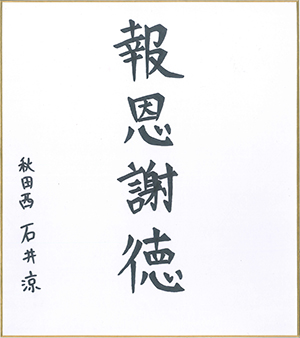 報恩謝徳
秋田西 石井涼